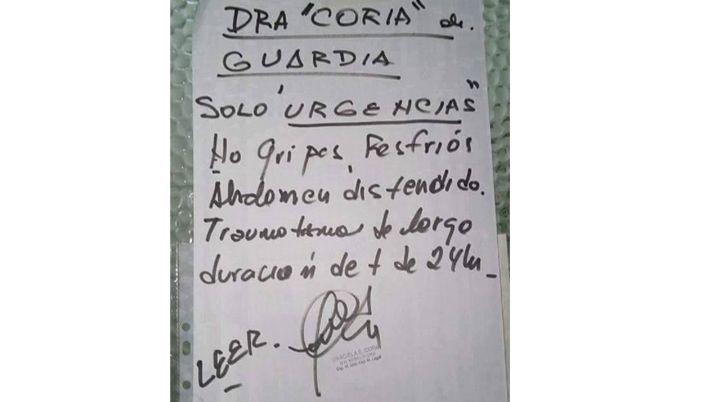 DRA "CORIA" de.
GUARDIA
SOLO "URGENCIAS"
No gripes, Resfriós
Abdomen distendido.
Traumatismo de largo
duración de + de 24hs_
LEER.
GRACIELA E. CORIA